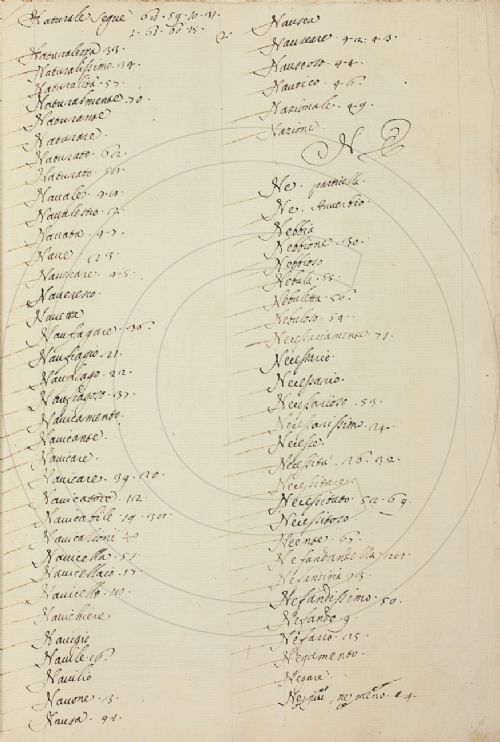 Naturale segue
Naturalezza 33.
Naturalissimo 34.
Naturalità 57.
Naturalmente 70.
Naturante
Naturare
Naturato 62.
Naturato
Navale
Navalestro
Navata 47.
Nave
Navicare 45.
Naveresco.
Navetta
Naufragare 36.
Naufragio 21.
Naufrago 22.
Naufragoso 37.
Navicamento.
Navicante.
Navicare.
Navicare 39. 20.
Navicatore 12.
Navicabile 19.
Navicazione 40
Navicella 51.
Navicellaio 17.
Navicello
Navichiere
Navigio
Navile 16.
Navilio
Navone 13.
Nausa 41.
Nausea
Nauseare 42. 43.
Nauseoso 44.
Nautico 46.
Nazionale 49.
Nazione
N E
Ne particella
Ne Avverbio
Nebbia
Nebbione 30.
Nebbioso
Nebula 55.
Nebuletta 56.
Nebuloso 54.
Necessariamente 71.
Necessario
Necessario.
Necessarioso 53.
Necessarissimo 24.
Necesse
Necessità 26. 32.
Necessitare
Necessitato 52. 69.
Necessitoso
Neente 67.
Nefandissimo 50.
Nefando 9.
Nefario 25.
Negamento.
Negare
Ne più, ne meno. 14.